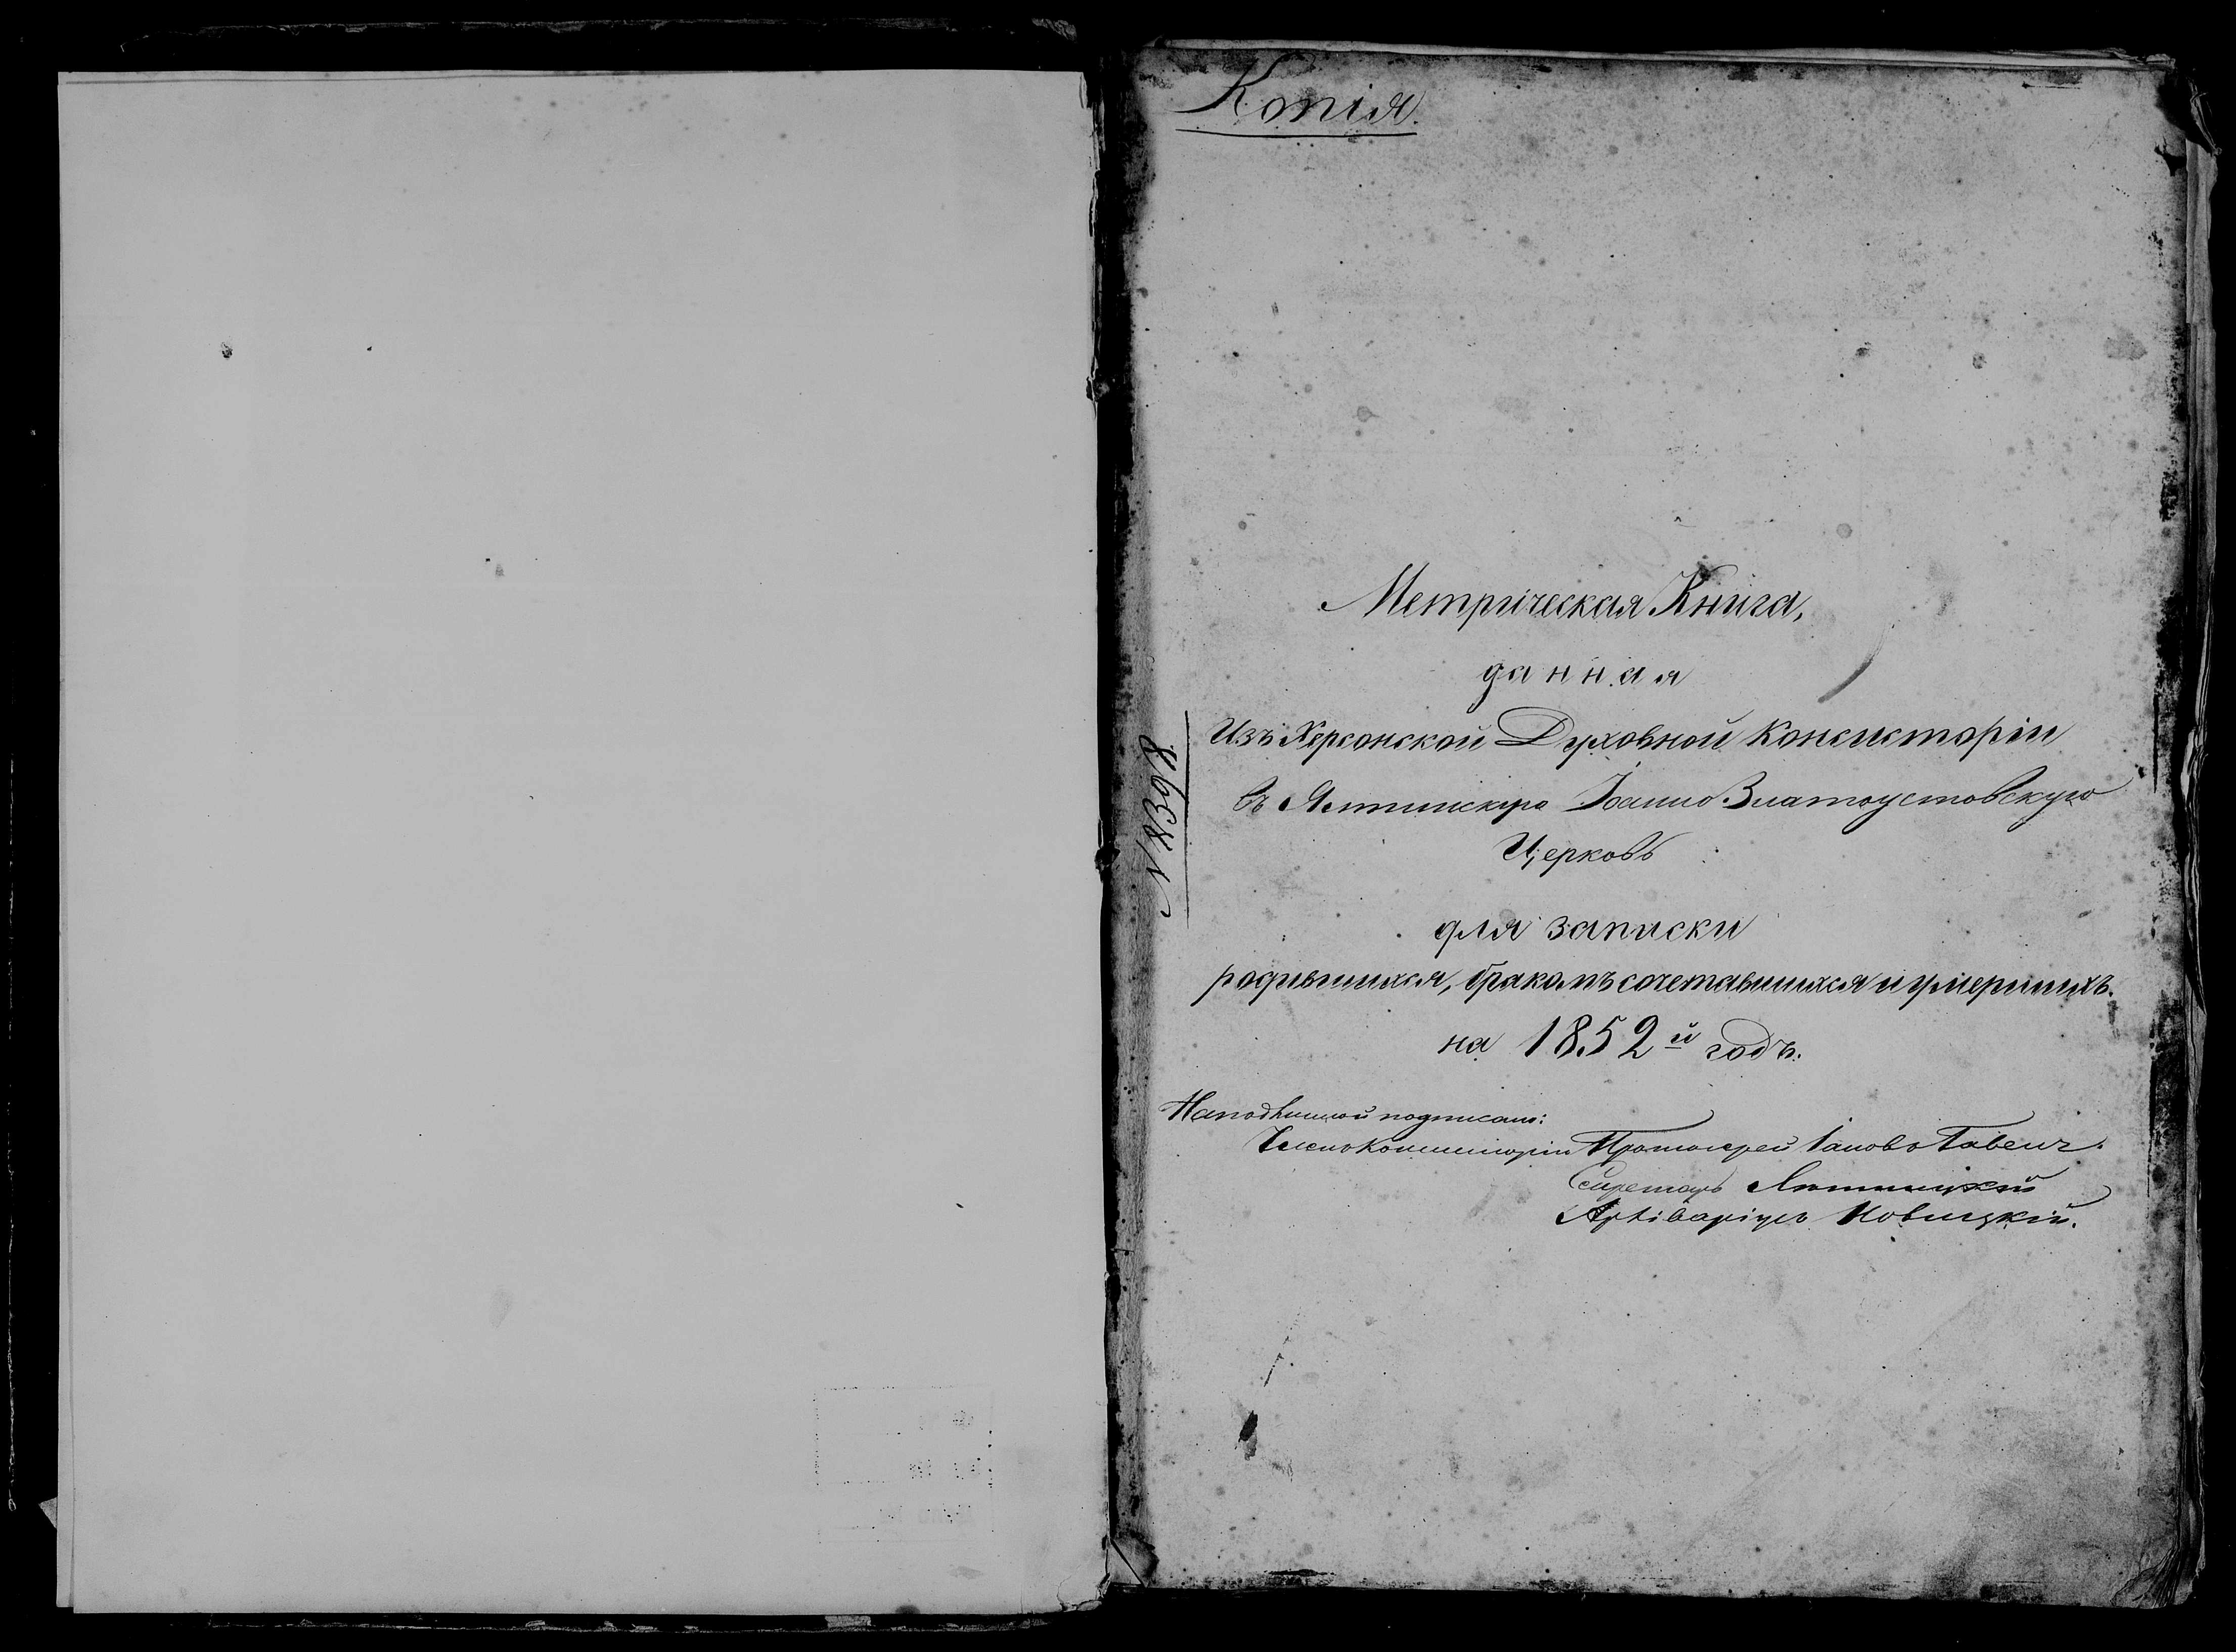 Копія.
Метрическая Книга,
данная
Изъ Херсонской Духовной Консисторіи
въ Ялтинскую Іоанно Златоустовскую
Церковь
№ 8398.
для записки
родившихся, бракомъ сочетавшихся и умершихъ.
на 1852й годъ.
На подлинной подписали:
Членъ Консисторіи Протоіерей Іаковъ
Секретарь
Архіваріусъ Новицкій.